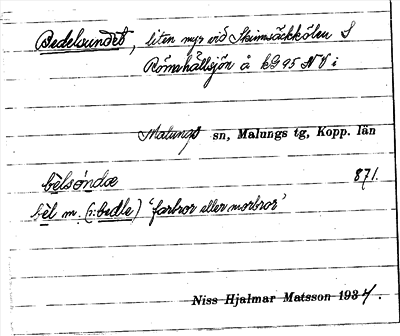 Bedelsundet, liten myr vid Skinnsäckkölen S
Römhällsjön å kG 95 NV i
Malungs sn, Malungs tg, Kopp. län
bèlsóndæ 871.
bèl m. (ɔ: bedle) 'farbror eller morbror'
Niss Hjalmar Matsson 1934.